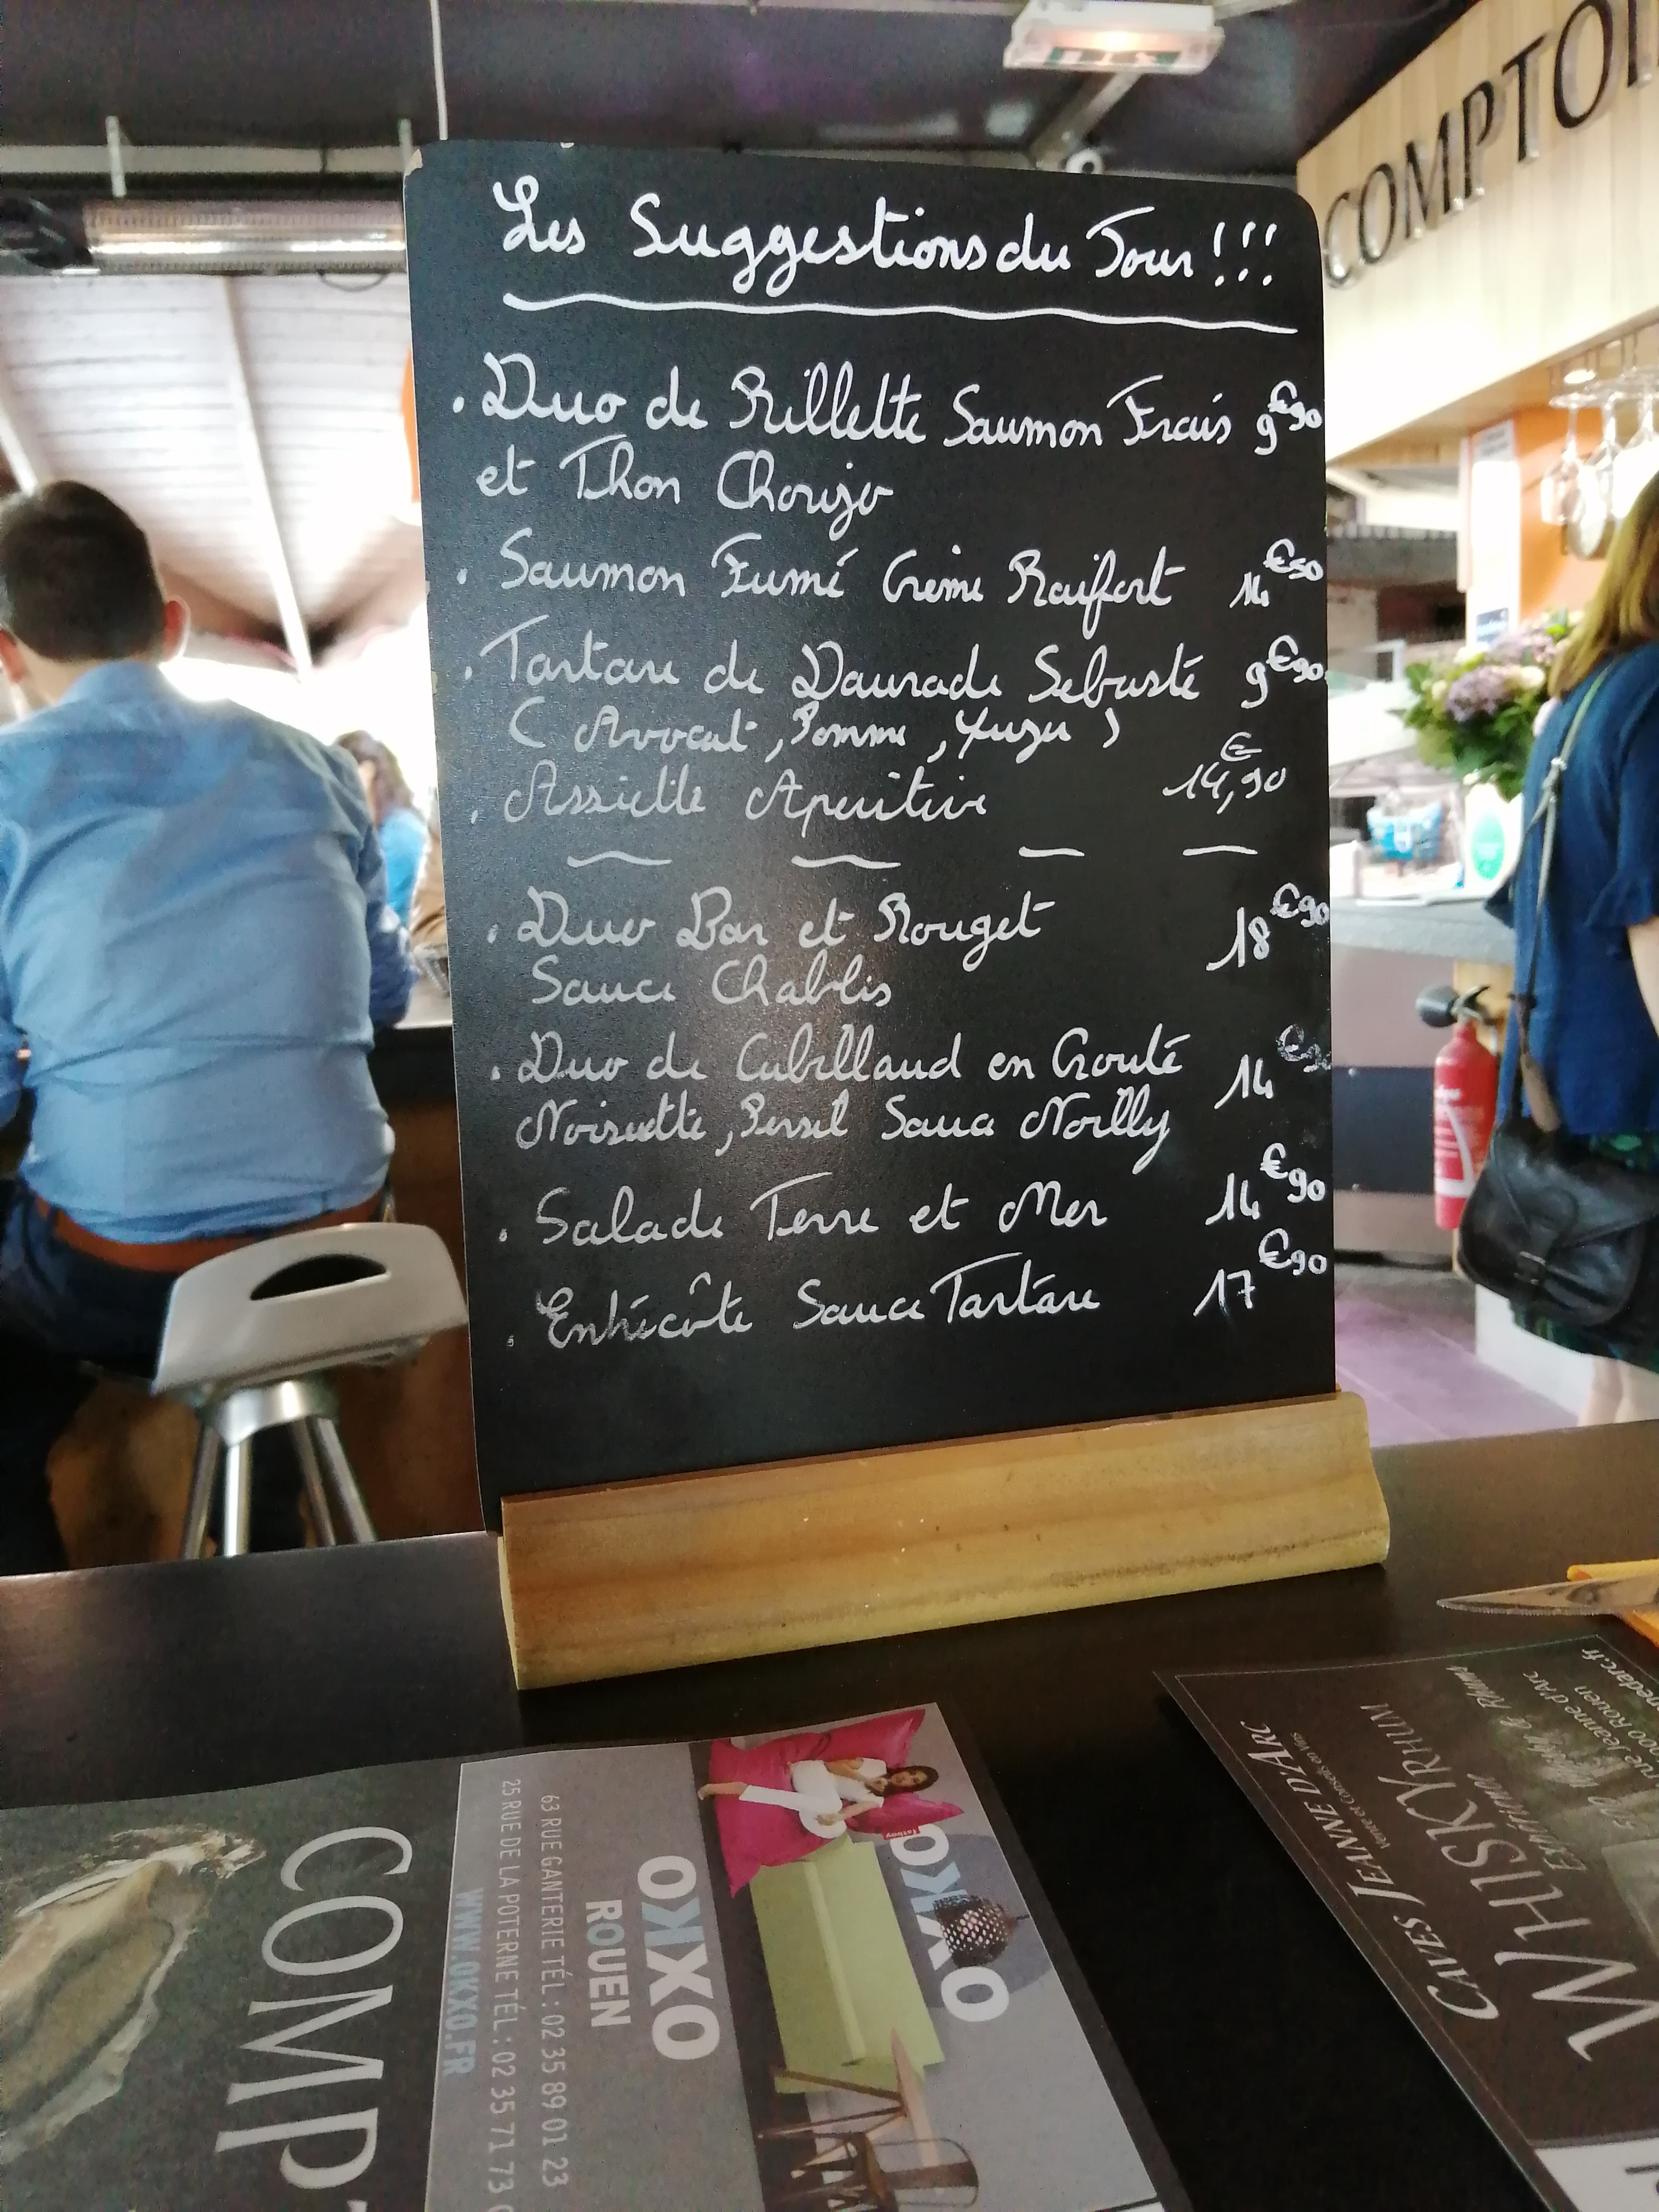 COMPTOI
Les Suggestions du Jour !!!
. Duo de Rillette Saumon Frais 9€90
et Thon Chorizo
. Saumon Fumé Crème Raifort 14€50
. Tartare de Daurade Sebaste 9€90
( Avocat, Pomme, Yuzu )
. Assiette Aperitive 14,90€
. Duo Bar et Rouget 18€90
Sauce Chablis
. Duo de Cabillaud en Crouté 14€90
Noisette, Persil Sauce Noilly
. Salade Terre et Mer 14€90
. Entrécôte Sauce Tartare 17€90
COMPT
OXKO
ROUEN
63 RUE GANTERIE TÉL : 02 35 89 01 23
25 RUE DE LA POTERNE TÉL : 02 35 71 73
WWW.OKXO.FR
OXKO
fatboy
CAVES JEANNE D'ARC
Vente et Conseils en Vins
WHISKY RHUM
Expérience
500 Whisky & Rhums
rue Jeanne d'Arc
000 Rouen
nedarc.fr